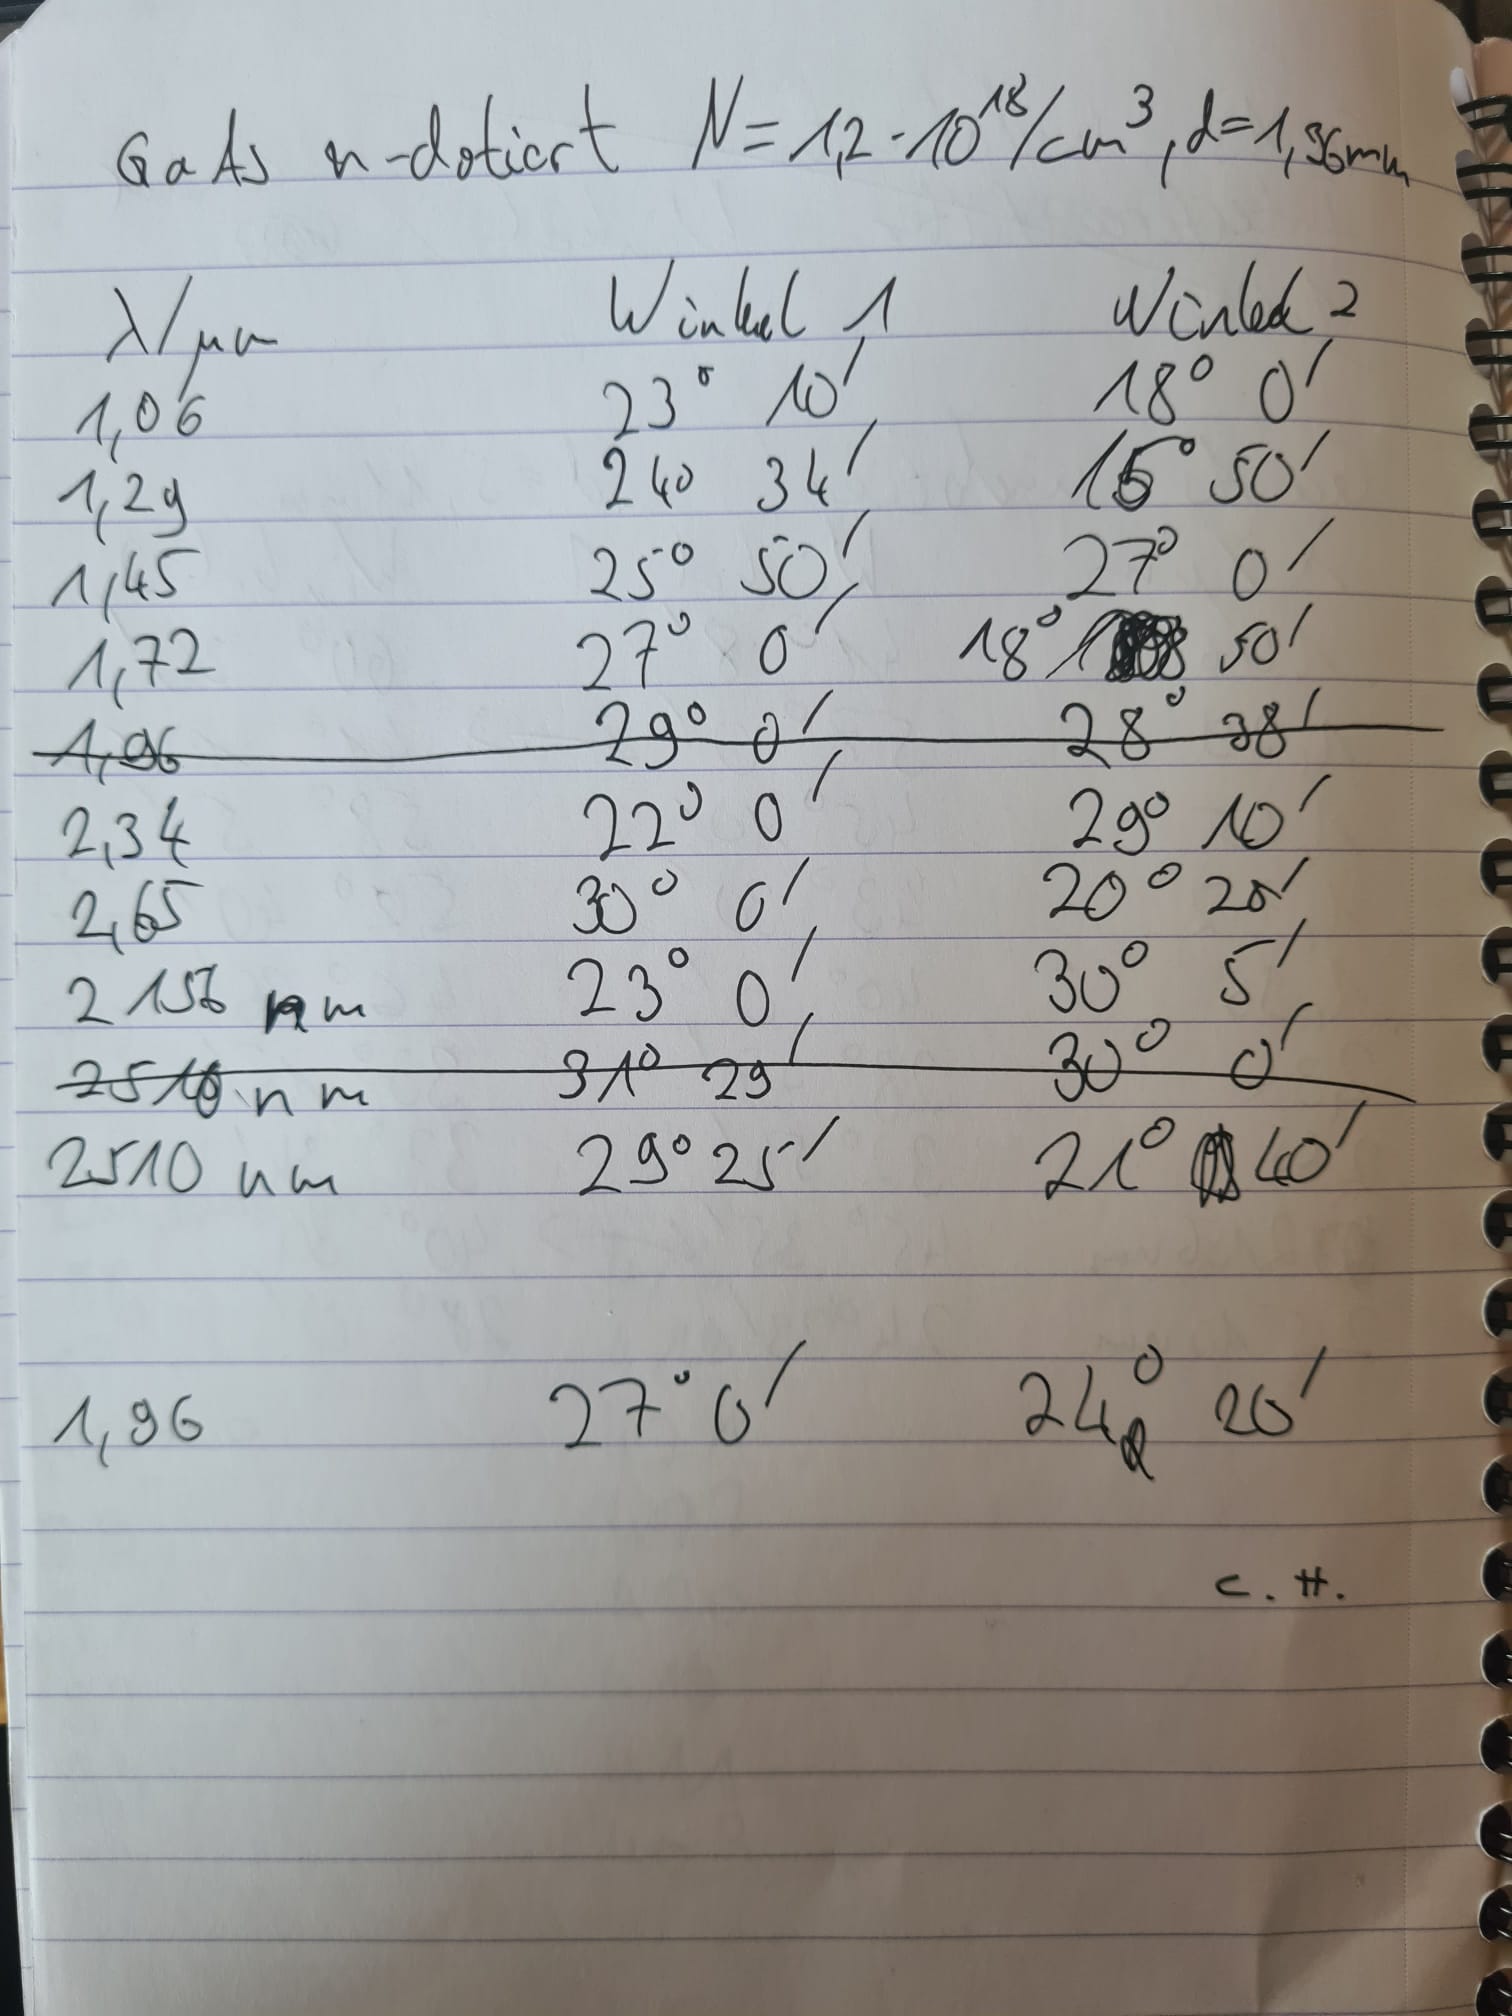 GaAs n-dotiert N = 1,2 · 10^18/cm^3, d=1,36mm
λ/μm Winkel 1 Winkel 2
1,06 23° 10' 18° 0'
1,29 24° 34' 50'
1,45 25° 50' 27° 0'
1,72 27° 0' 18° 50'
1,96 29° 0' 28° 38'
2,34 22° 0' 29° 10'
2,65 30° 0' 20° 20'
2156 nm 23° 0' 30° 5'
2510 nm 31° 29' 30° 0'
2510 nm 29° 25' 21° 40'
1,96 27° 0' 24° 20'
C. H.